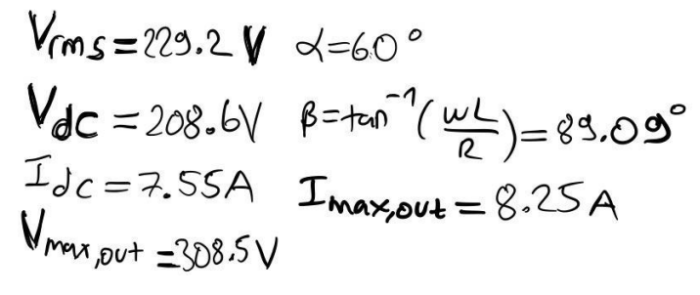 Vrms=229.2 V α=60°
Vdc=208.6V β=tan⁻¹(wL/R)=89.09°
Idc=7.55A Imax,out=8.25A
Vmax,out=308.5V